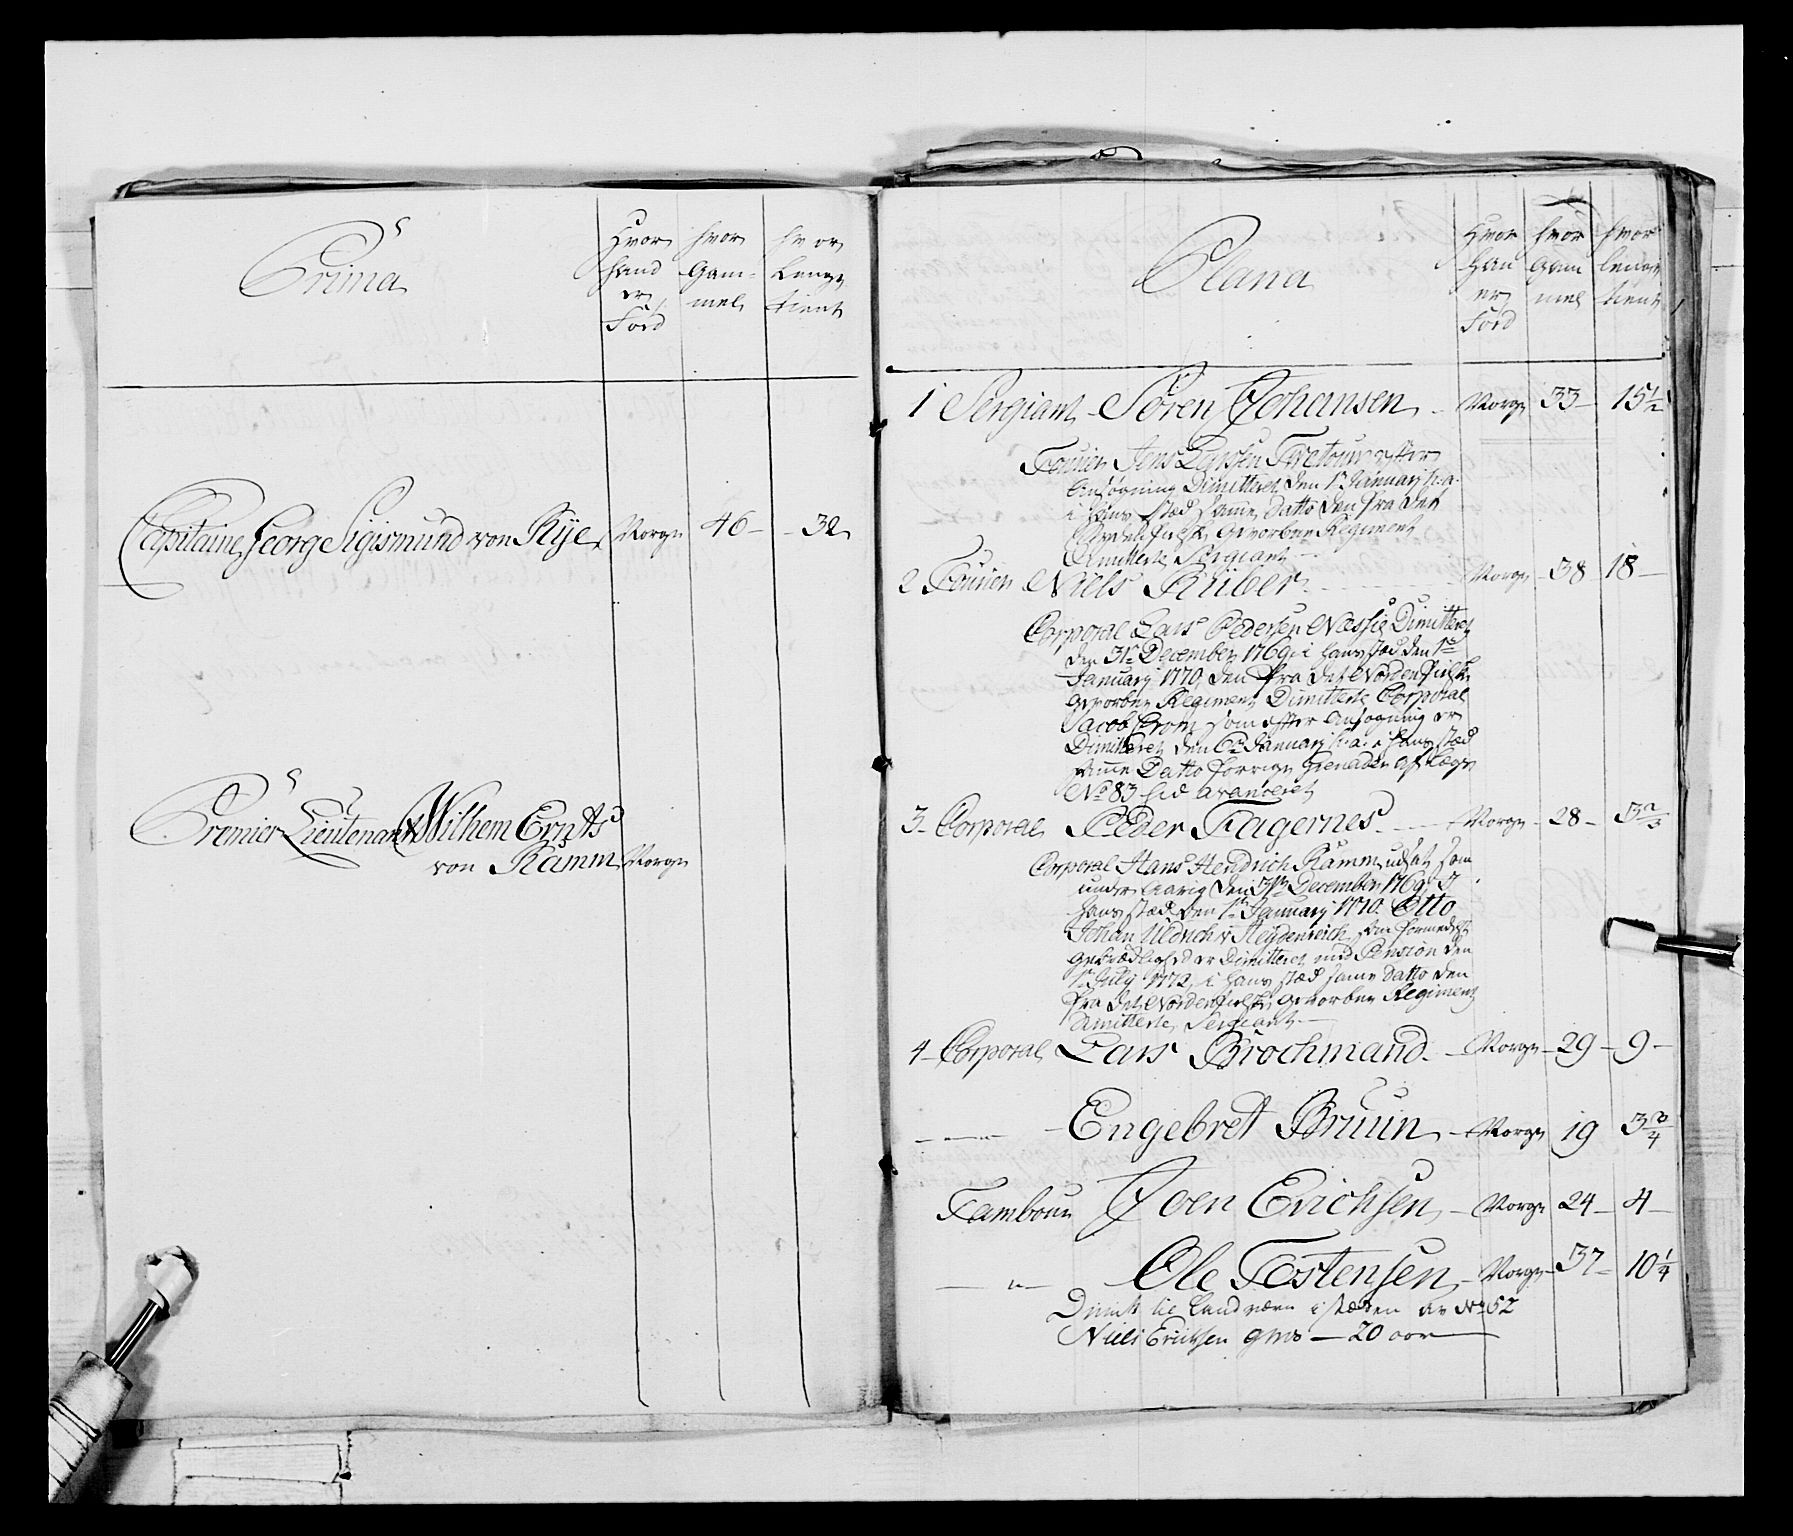 Prima
Hvor hand er Föd
hvor Gam- mel
hvor Lenge tient
Capitaine Georg Sigismund von Rÿe Norge 46 - 32
Premier Lieutenant Wilhem Ernsts
von Ramm Norge
Plana
Hvor Han er Föd
hvor Gam mel
hvor lenge tient
1 Sergiant Søren Johansen - Norge 33 - 15 1/2
Fourier Jens Larsen Tretour efter
Ansøgning Dimitteret den 1te Januarj h: a:
i hans stæd samme Datto den fra det
Nordenfield: Gevorbne Regiment
Dimitterte Sergeant
2 Fourier Niels Kuber - Norge - 38 18 -
Corporal Lars Pedersen Næssie Dimitteret
den 31te December 1769 i hans stæd den 1te
Januarj 1770, den fra det Nordenfield:
Gevorbne Regiment Dimitterte Corporal
Jacob Krom som efter Ansøgning er
Dimitteret den 6te Januarj h: a: i hans stæd
samme Datto forrige Grenader af Lægd
No 83 hid avanceret
3 - Corporal Peder Fagernes - Norge - 28 - 3 2/3
Corporal Hans Hendrich Ramm, udsat som
under Aarig den 31te December 1769. I
hans stæd den 1te Januarj 1770. Otto
Johan Uldrich v: Heydenreich som formedelst
er Dimitteret med Pension den
1te Julÿ 1772, i hans stæd samme Datto den
fra det Nordenfield: Gevorbne Regiment
Dimitterte Sergeant
4 - Corporal Lars Brochmand - Norge - 29 - 9 -
Engebret Bruun - Norge 19 3 3/4
Tambour Iver Erichsen - Norge 24 - 4 -
- " - Ole Tostensen - Norge - 37 - 10 1/4
Dimit: til Land værn i stæden av No 52
Niels Erichsen gml - 20 aar